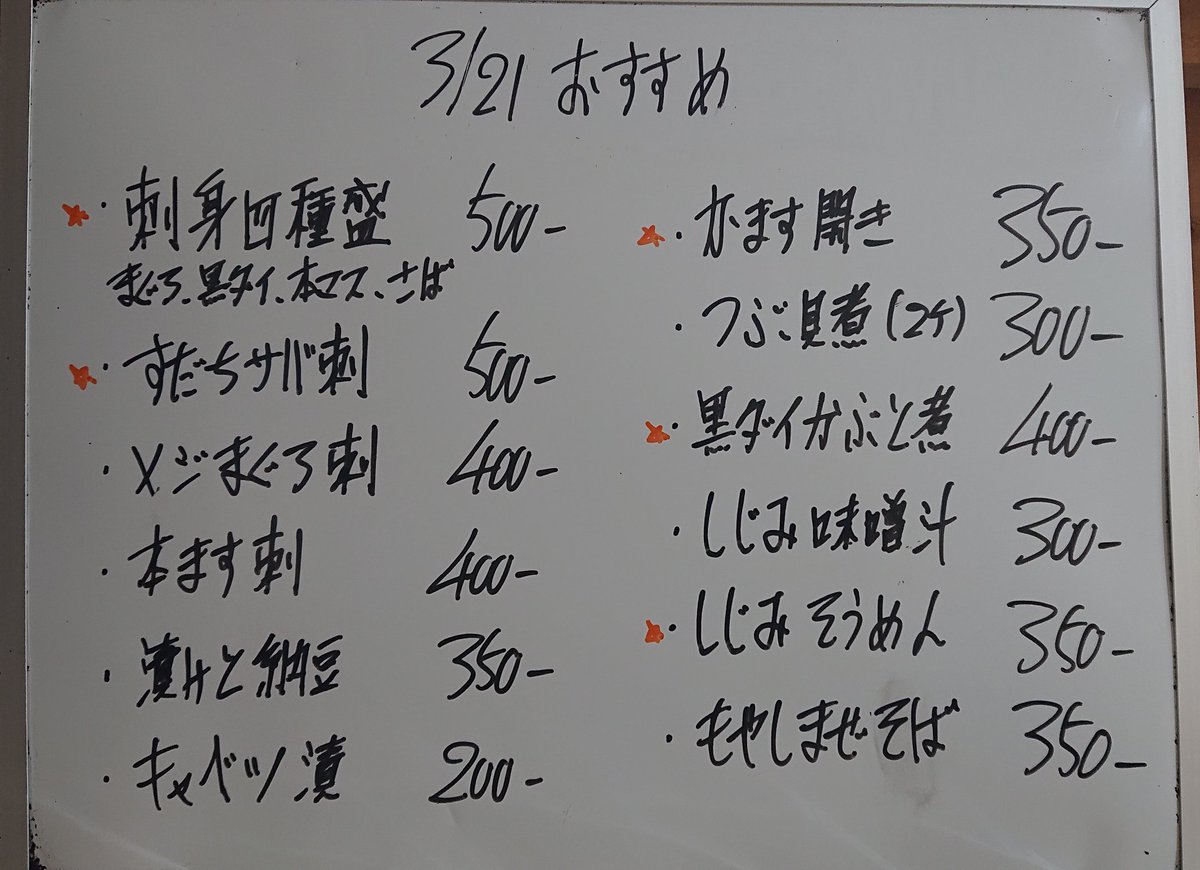 3/21 おすすめ
★・刺身四種盛 500-
まぐろ、黒ダイ、本マス、さば
★・すだちサバ刺 500-
・メジまぐろ刺 400-
・本ます刺 400-
・漬けと納豆 350-
・キャベツ漬 200-
★・かます開き 350-
・つぶ貝煮(2ケ) 300-
★・黒ダイかぶと煮 400-
・しじみ味噌汁 300-
★・しじみそうめん 350-
・もやしまぜそば 350-